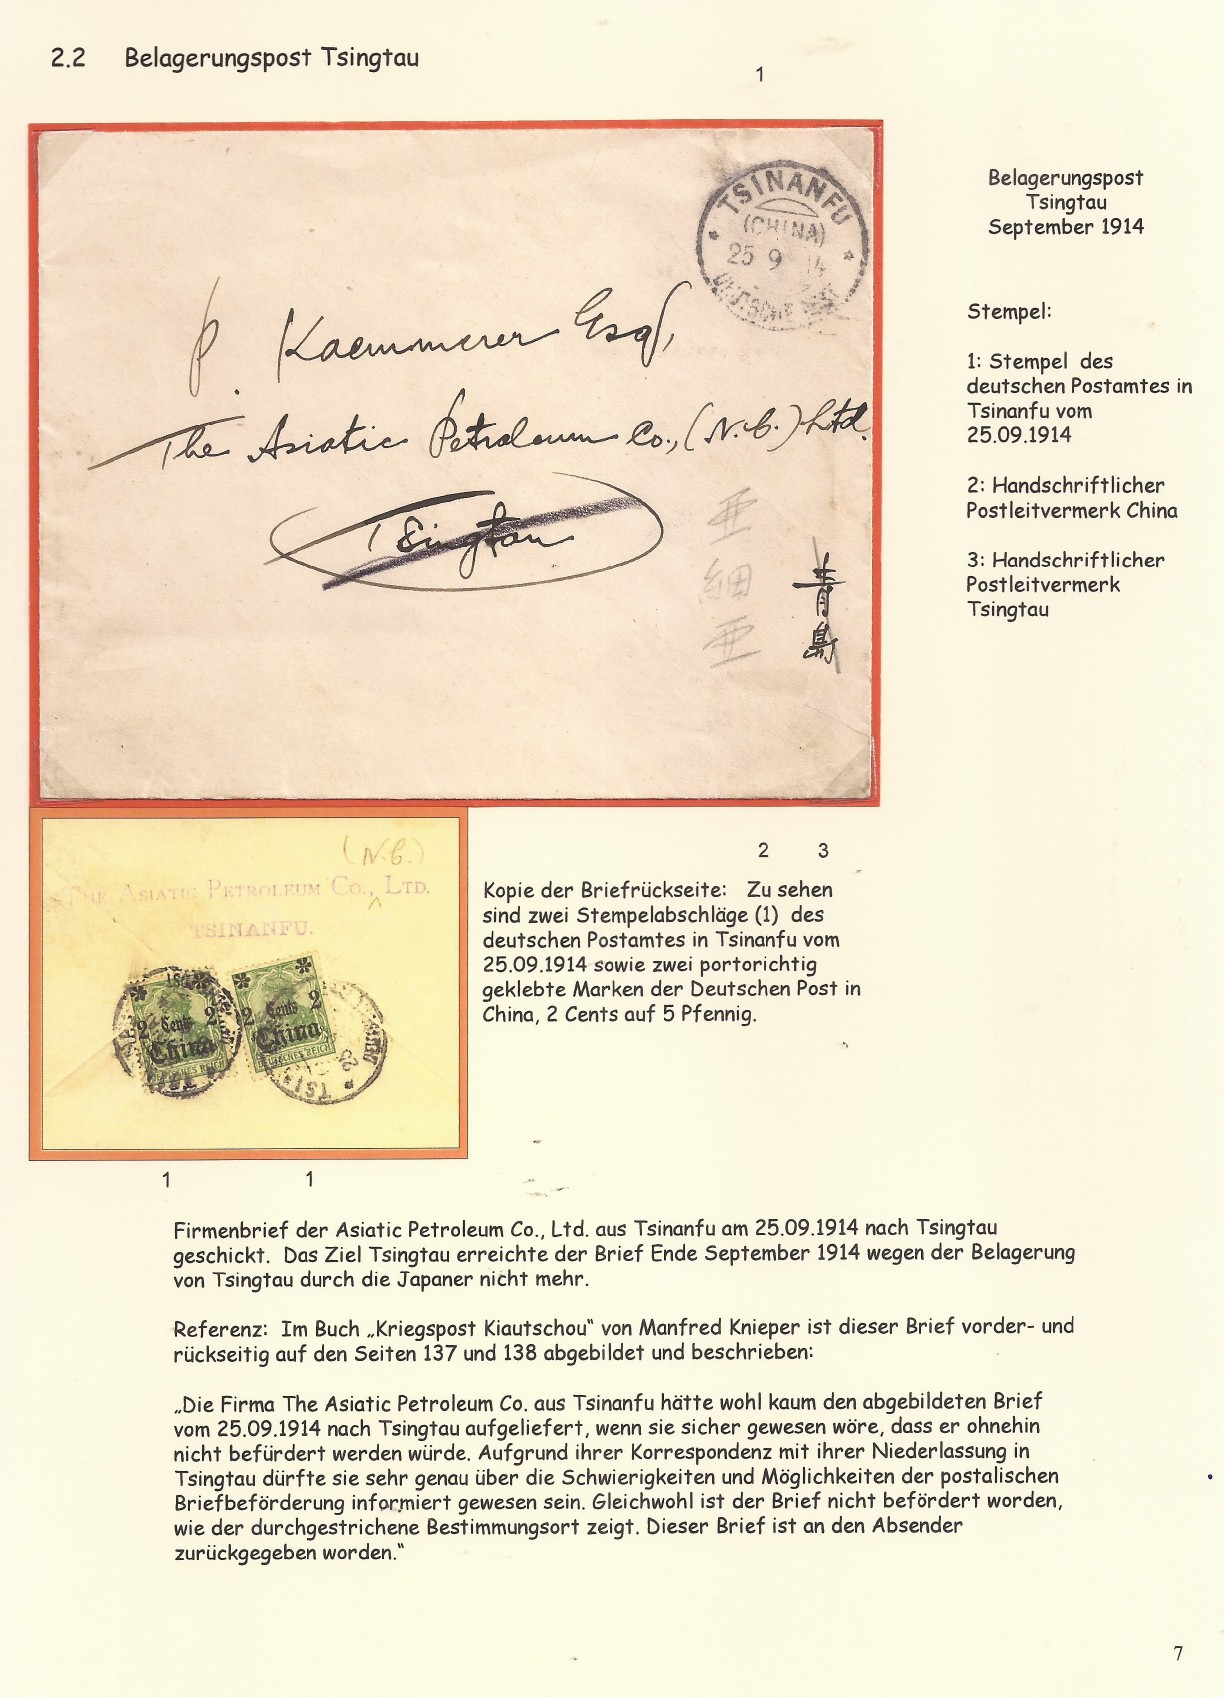 2.2 Belagerungspost Tsingtau
1
TSINANFU
(CHINA)
25 9 14
DEUTSCHE POST
P. Kaemmerer Esq,
The Asiatic Petroleum Co., (N.C.) Ltd.
Tsingtau
亜
細
亜
青
島
Belagerungspost
Tsingtau
September 1914
Stempel:
1: Stempel des
deutschen Postamtes in
Tsinanfu vom
25.09.1914
2: Handschriftlicher
Postleitvermerk China
3: Handschriftlicher
Postleitvermerk
Tsingtau
2 3
(N.C.)
THE ASIATIC PETROLEUM CO., LTD.
TSINANFU.
2 Cents 2
China
DEUTSCHES REICH
2 Cents 2
China
DEUTSCHES REICH
1 1
Kopie der Briefrückseite: Zu sehen
sind zwei Stempelabschläge (1) des
deutschen Postamtes in Tsinanfu vom
25.09.1914 sowie zwei portorichtig
geklebte Marken der Deutschen Post in
China, 2 Cents auf 5 Pfennig.
Firmenbrief der Asiatic Petroleum Co., Ltd. aus Tsinanfu am 25.09.1914 nach Tsingtau
geschickt. Das Ziel Tsingtau erreichte der Brief Ende September 1914 wegen der Belagerung
von Tsingtau durch die Japaner nicht mehr.
Referenz: Im Buch „Kriegspost Kiautschou“ von Manfred Knieper ist dieser Brief vorder- und
rückseitig auf den Seiten 137 und 138 abgebildet und beschrieben:
„Die Firma The Asiatic Petroleum Co. aus Tsinanfu hätte wohl kaum den abgebildeten Brief
vom 25.09.1914 nach Tsingtau aufgeliefert, wenn sie sicher gewesen wöre, dass er ohnehin
nicht befürdert werden würde. Aufgrund ihrer Korrespondenz mit ihrer Niederlassung in
Tsingtau dürfte sie sehr genau über die Schwierigkeiten und Möglichkeiten der postalischen
Briefbeförderung informiert gewesen sein. Gleichwohl ist der Brief nicht befördert worden,
wie der durchgestrichene Bestimmungsort zeigt. Dieser Brief ist an den Absender
zurückgegeben worden.“
7